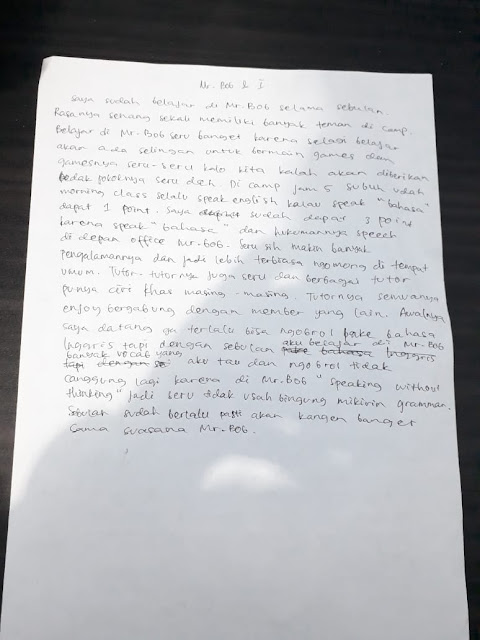 Mr. Bob & I
Saya sudah belajar di Mr.Bob selama sebulan.
Rasanya senang sekali memiliki banyak teman di camp.
Belajar di Mr.Bob seru banget karena selagi belajar
akan ada selingan untuk bermain games dan
gamesnya seru-seru kalo kita kalah akan diberikan
bedak pokoknya seru deh. Di camp jam 5 subuh udah
morning class selalu speak english kalau speak "bahasa"
dapat 1 point. Saya sudah dapat 3 point
karena speak "bahasa" dan hukumannya speech
di depan office Mr.Bob. Seru sih makin banyak
pengalamannya dan jadi lebih terbiasa ngomong di tempat
umum. Tutor-tutornya juga seru dan berbagai tutor
punya ciri khas masing-masing. Tutornya semuanya
enjoy bergabung dengan member yang lain. Awalnya
saya datang ga terlalu bisa ngobrol pake bahasa
Inggris tapi dengan sebulan aku belajar di Mr.Bob
banyak vocab yang pake bahasa Inggris
tapi dengan se aku tau dan ngobrol tidak
canggung lagi karena di Mr.Bob "Speaking without
thinking" jadi seru tidak usah bingung mikirin grammar.
Sebulan sudah berlalu pasti akan kangen banget
sama suasana Mr.Bob.